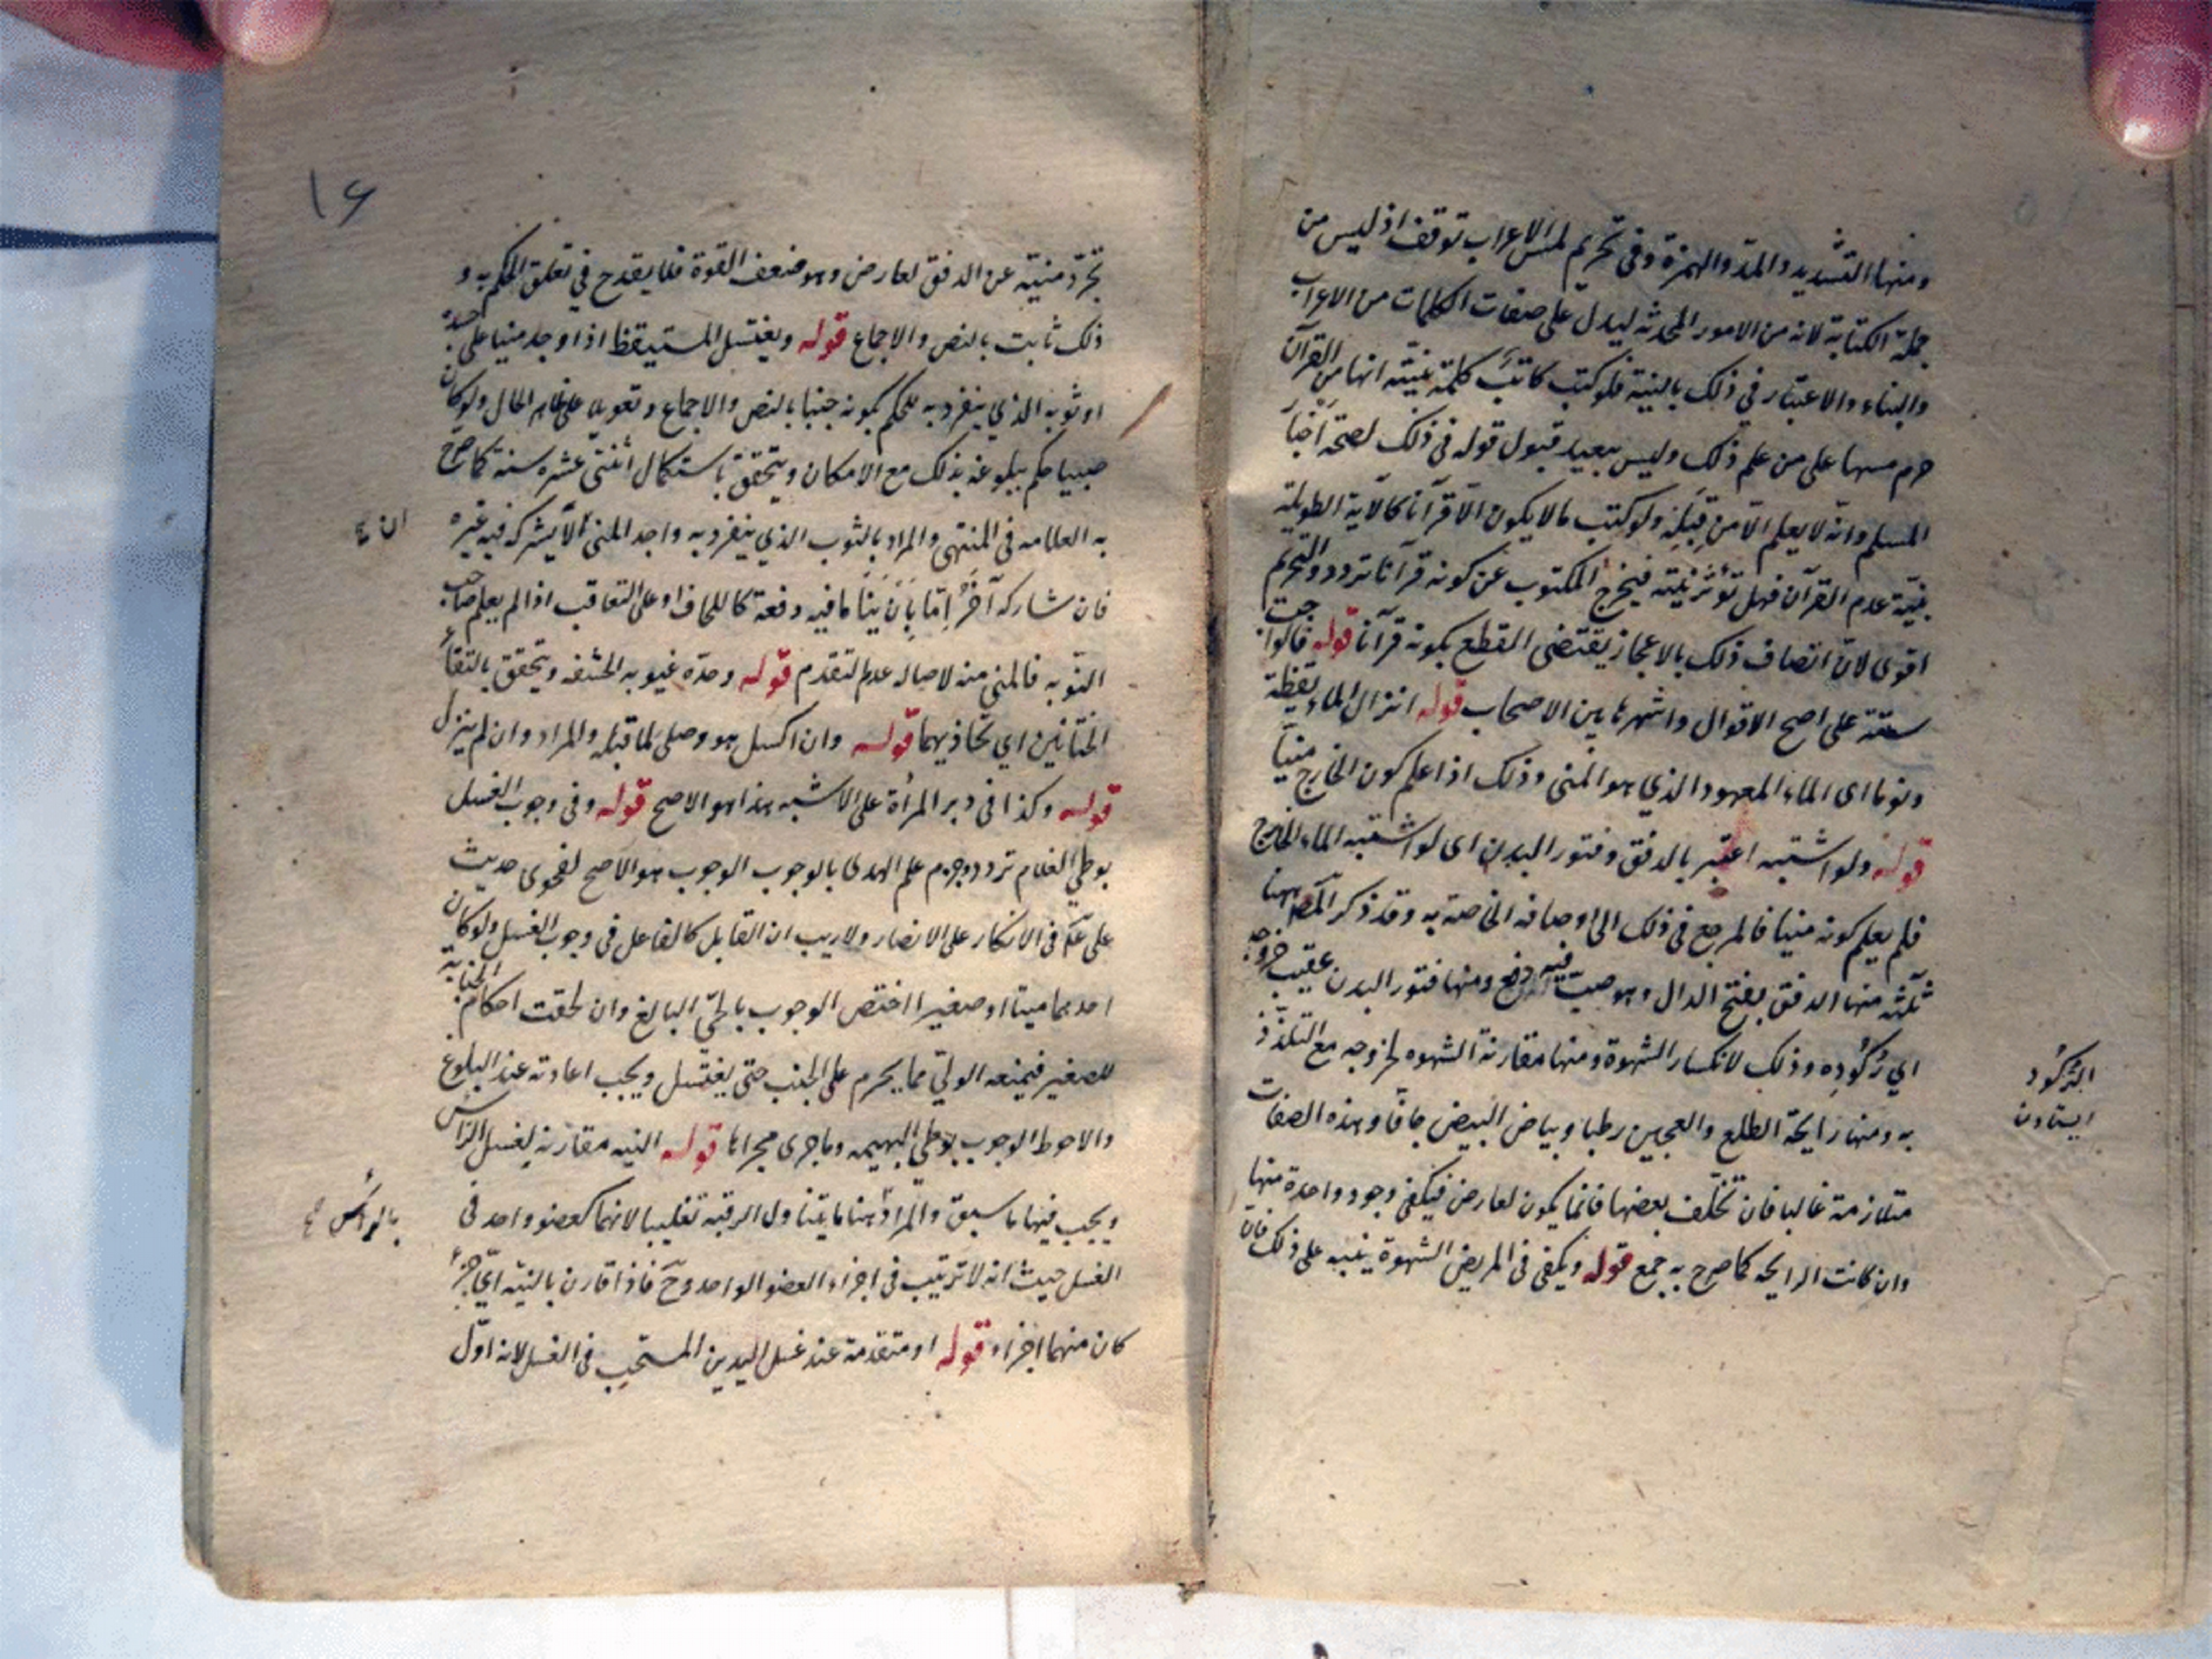 ومنها التشديد والمد والهمزة وفى تحريم لمس الاعراب توقف اذ ليس من
جملة الكتابة لانه من الامور المحدثه ليدل على صفات الكلمات من الاعراب
والبناء والاعتبار في ذلك بالنية فلو كتب كاتب كلمة بنيّة انها من القرآن
حرم مسها على من علم ذلك وليس ببعيد قبول قوله فى ذلك لصحة اخبار
المسلم وانّه لا يعلم الّا من قِبَلِه ولو كتب ما لا يكون الّا قرآنا كالآية الطويلة
بنيّة عدم القرآن فهل تؤثر نيّته فيخرج المكتوب عن كونه قرآنا تردد والتحريم
اقوى لان اتصاف ذلك بالاعجاز يقتضى القطع بكونه قرآنا قوله فالواجب
ستة على اصح الاقوال واشهرها بين الاصحاب قوله انزال الماء يقظة
ونوما اى الماء المعهود الذي هو المنى وذلك اذا علم كون الخارج منيّا
قوله ولو اشتبه اعتبر بالدفق وفتور البدن اى لو اشتبه الماء الخارج
فلم يعلم كونه منيا فالمرجع فى ذلك الى اوصافه الخاصة به وقد ذكر المص ههنا
ثلثه منها الدفق بفتح الدال وهو صبّ فيه دفع ومنها فتور البدن عقيب خروجه
اي رُكُودِه وذلك لانكسار الشهوة ومنها مقارنة الشهوه لخروجه مع التلذّذ
به ومنها رايحة الطلع والعجين رطبا وبياض البيض جافّا وهذه الصفات
متلازمة غالبا فان تخلّف بعضها فانما يكون لعارض فيكفى وجود واحدة منها
وان كانت الرايحه كما صرح به جمع قوله ويكفى فى المريض الشهوة ينبه على ذلك فان
الرُّكُود
ايستادن
١٦
تجرّد منيّه عن الدفق لعارض وهو ضعف القوة فلا يقدح في تعلق الحكم به و
ذلك ثابت بالنص والاجماع قوله ويغتسل المستيقظ اذا وجد منيا على جسده
او ثوبه الذي ينفرد به للحكم بكونه جنبا بالنص والاجماع وتعويلا على ظاهر الحال ولو كان
صبيا حكم ببلوغه بذلك مع الامكان ويتحقق باستكمال اثنتى عشره سنة كما صرح
به العلامه فى المنتهى والمراد بالثوب الذي ينفرد به واجد المنى الّا يشركه فيه غيره
فان شاركه آخرُ إمّا بِاَنْ يَنَامَا فيه دفعة كاللحاف او على التعاقب اذا لم يعلم صاحب
النوبه فالمني منه لاصاله عدم التقدم قوله وحدّه غيبوبه الحشفه ويتحقق بالتقاء
الختانين اي تحاذيهما قوله وان اكسل هو وصلى لما قبله والمراد وان لم ينزل
قوله وكذا فى دبر المرأة على الاشبه هذا هو الاصح قوله وفى وجوب الغسل
بوطي الغلام تردد وجزم علم الهدى بالوجوب الوجوب هو الاصح لفحوى حديث
على ع فى الانكار على الانصار ولاريب ان القابل كالفاعل فى وجوب الغسل ولو كان
احدهما ميتا او صغيرا اختص الوجوب بالحيّ البالغ وان لحقت احكام الجنابة
للصغير فيمنعه الوليّ مما يحرم على الجنب حتى يغتسل ويجب اعادته عند البلوغ
والاحوط الوجوب بوطي البهيمه وما جرى مجراها قوله النيه مقارنة لغسل الرّاس
ويجب فيها ما سبق والمراد هنا ما يتناول الرقبه تغليبا لانهما كعضو واحد فى
الغسل حيث انه لا ترتيب فى اجزاء العضو الواحد وح فاذا قارن بالنيّه اىّ جزء
كان منهما اجزاء قوله او متقدمة عند غسل اليدين المستحب فى الغسل لانه اوّل
بالرأس